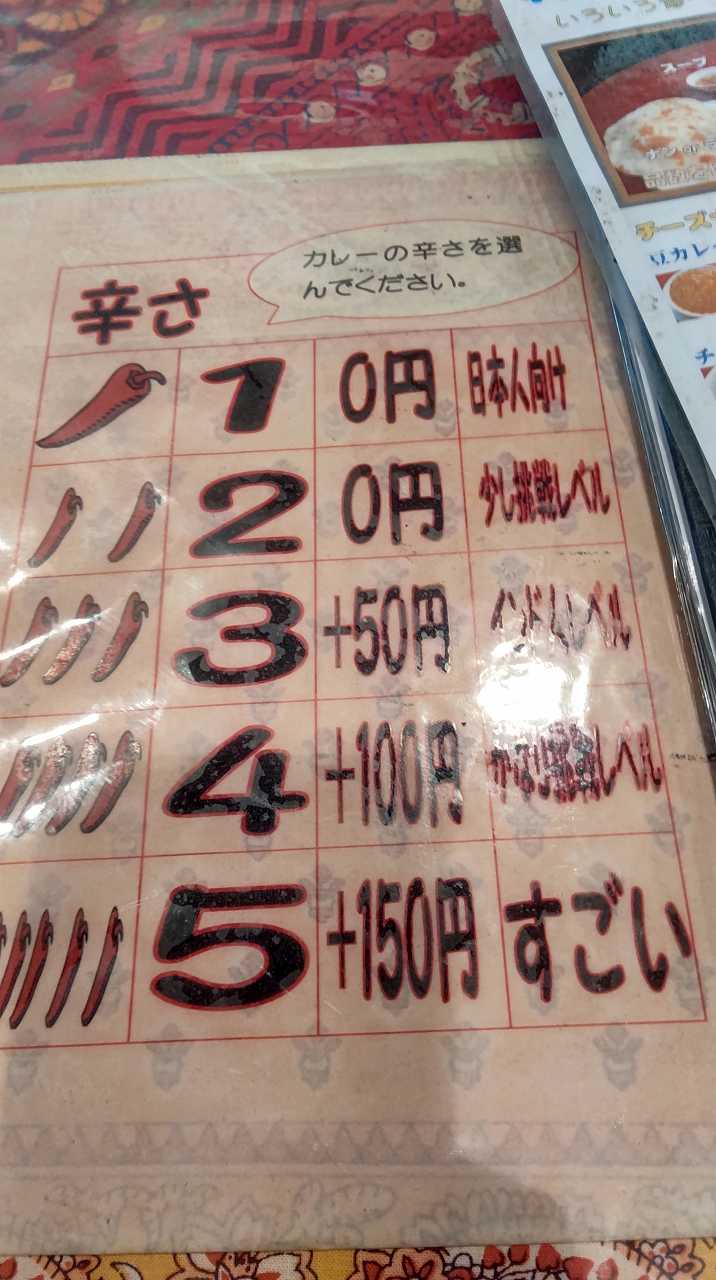 カレーの辛さを選
んでください。
辛さ
1 0円 日本人向け
2 0円 少し挑戦レベル
3 +50円 インド人レベル
4 +100円 かなり挑戦レベル
5 +150円 すごい
いろいろ
スープ
ナン or
チーズ
豆カレ
チ